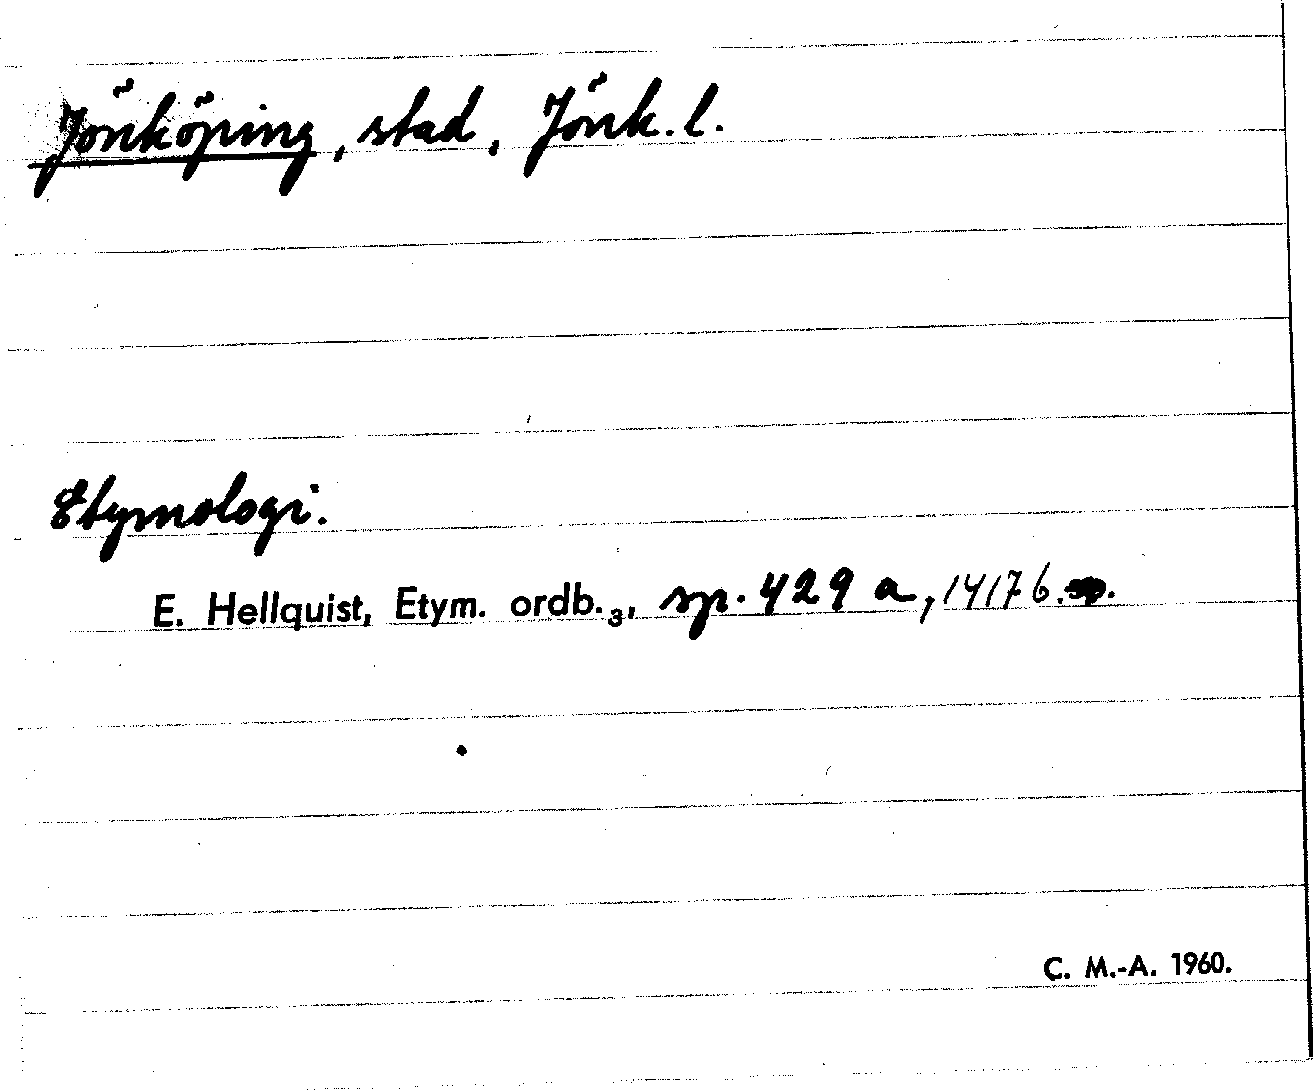 Jönköping, stad, Jönk. l.
Etymologi.
E. Hellquist, Etym. ordb.₃, sp. 429 a, 1417 b.
C. M.-A. 1960.